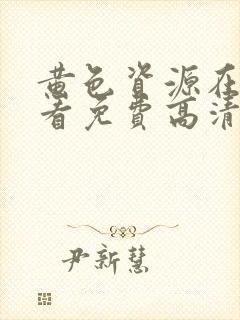 黄色资源在
看免费高清
尹新慧